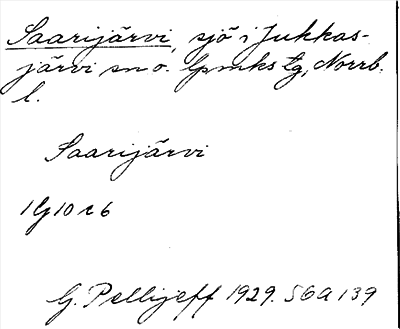 Saarijärvi, sjö i Jukkas-
järvi sn o. lpmks tg, Norrb.
l.
Saarijärvi
1G10c6
G. Pellijeff 1929. SGA 139